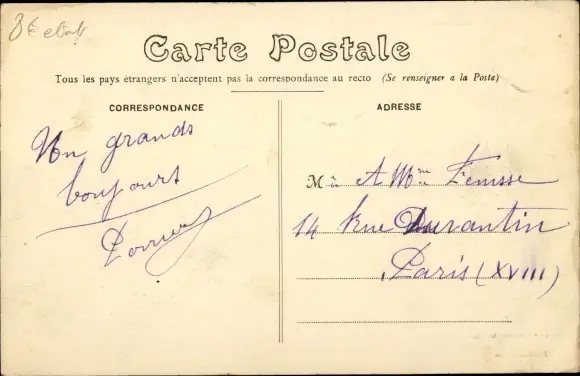 Carte Postale
Tous les pays étrangers n'acceptent pas la correspondance au recto (Se renseigner a la Poste)
CORRESPONDANCE
Un grands
bonjours
ADRESSE
M à A Mme
14 Rue Durantin
Paris (XVIII)